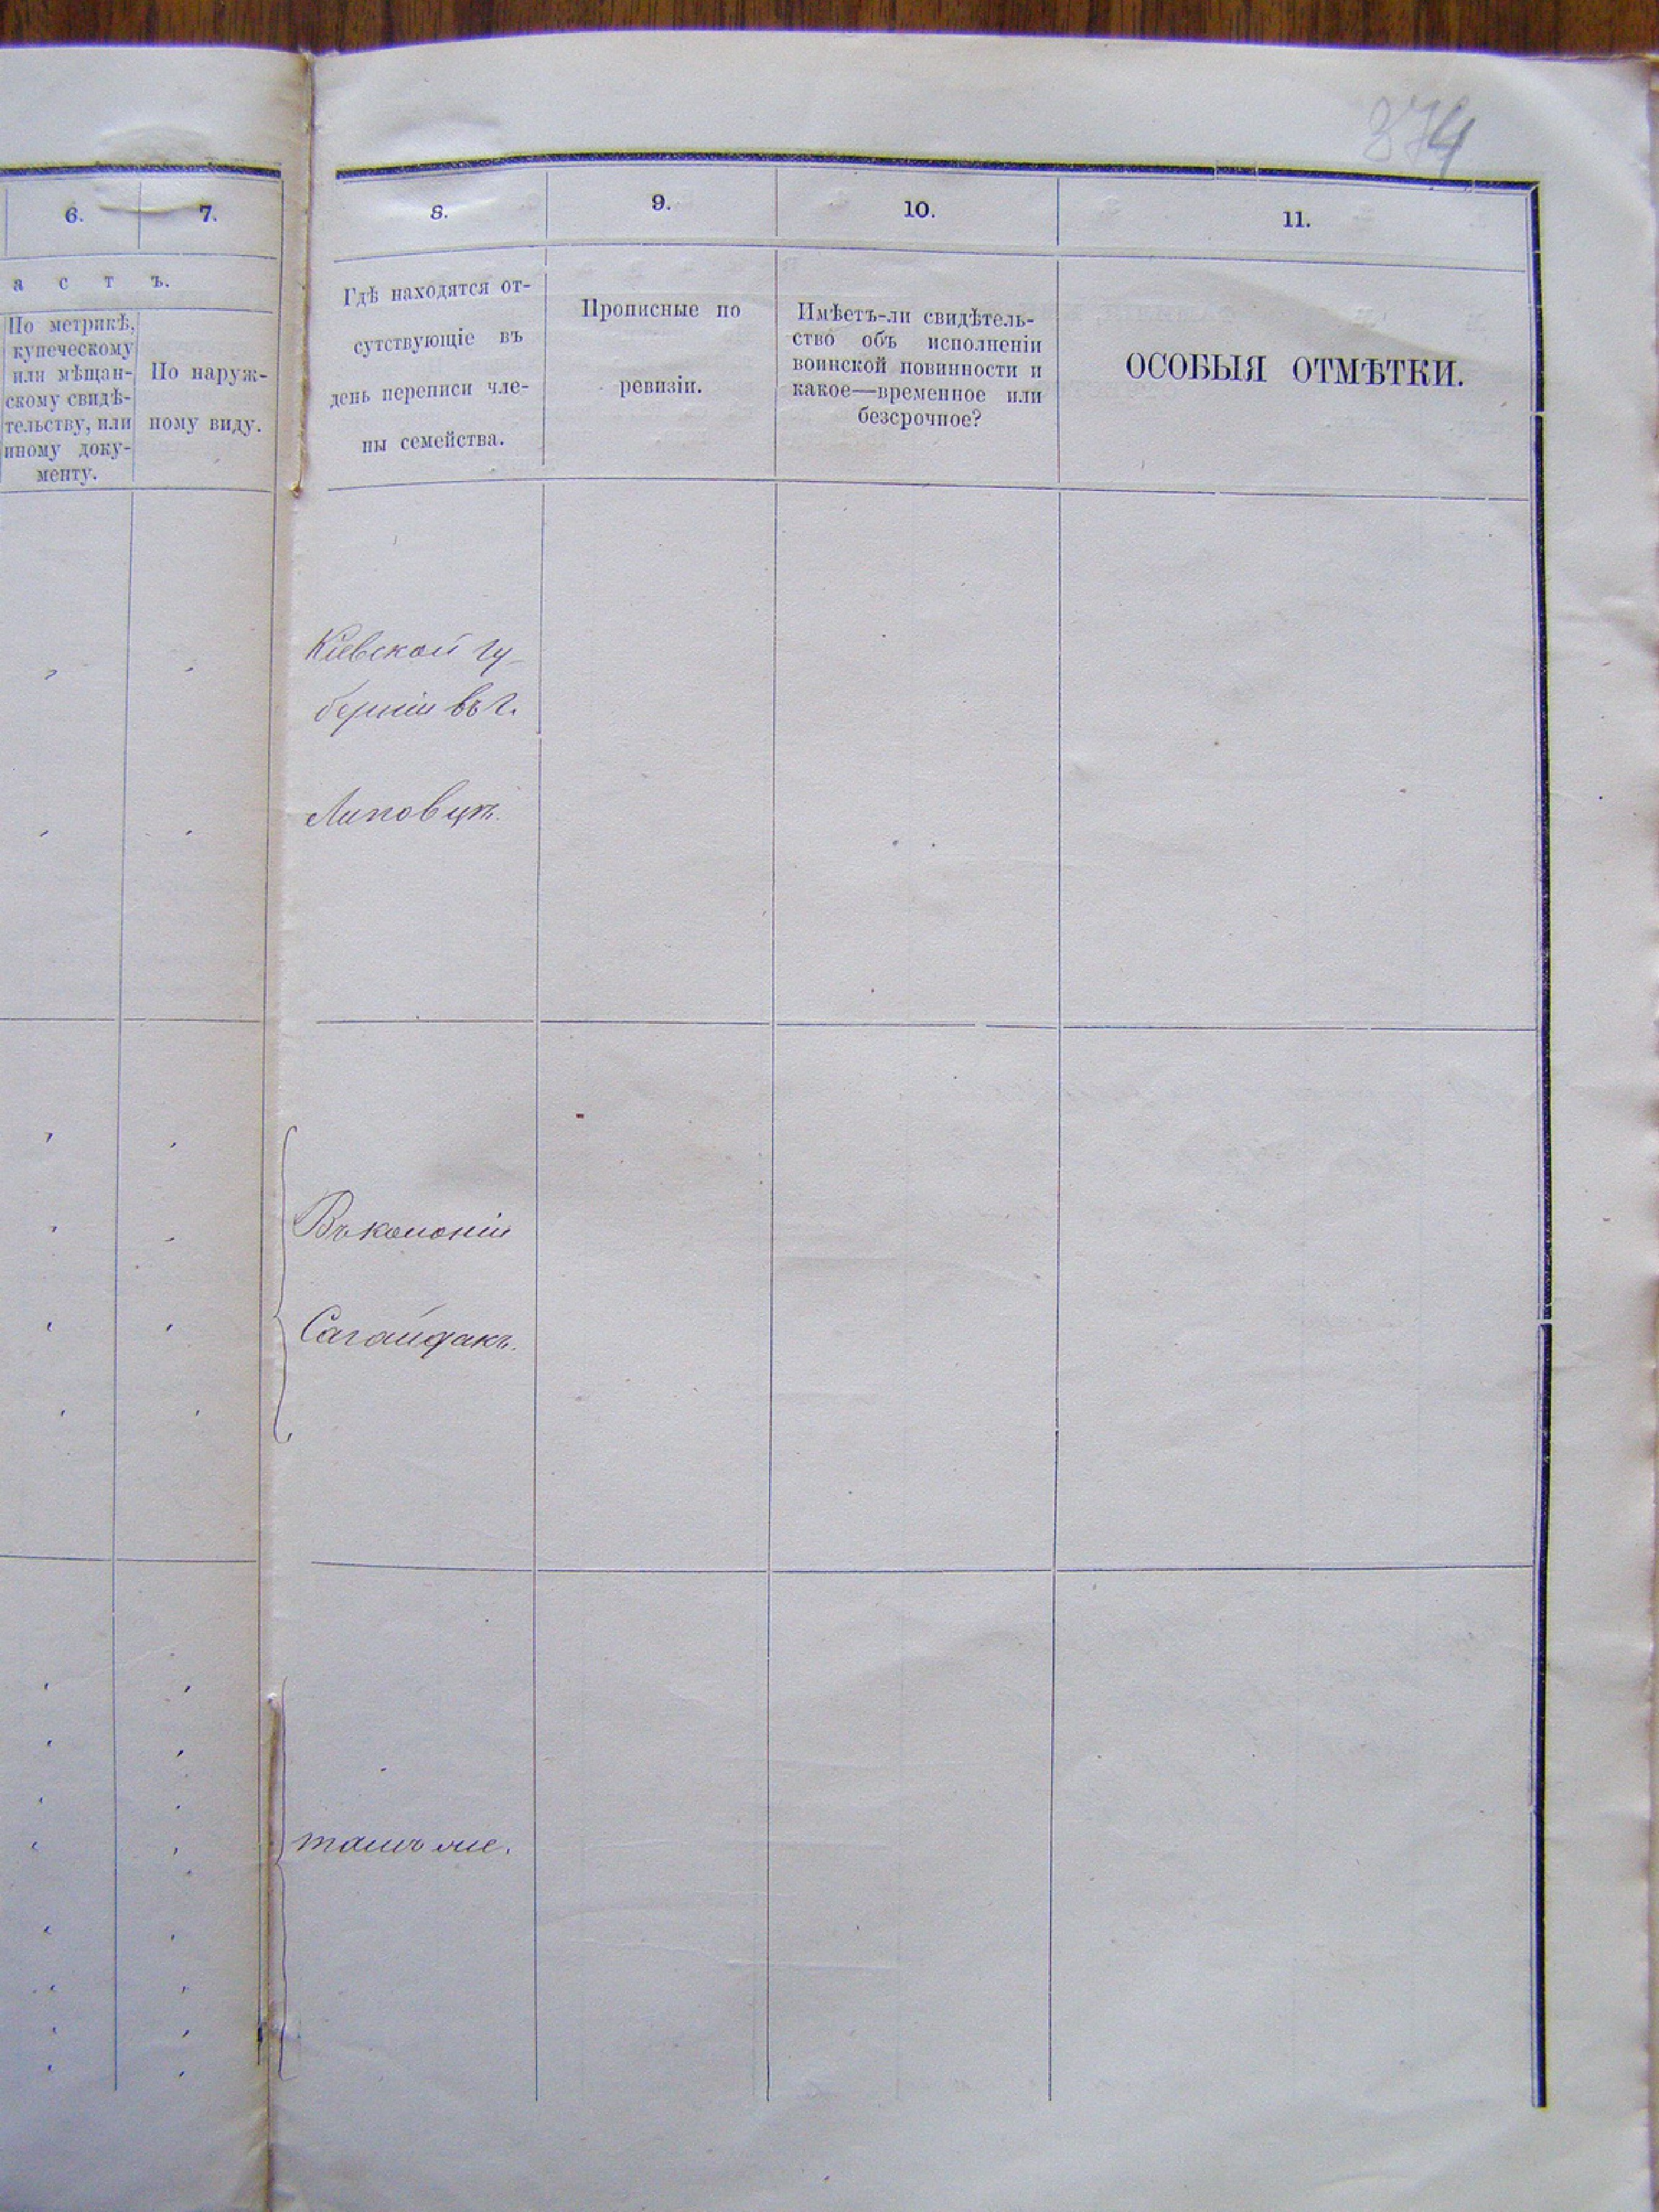 374
6. 7. 8. 9. 10. 11.
а с т ъ.
По метрикѣ,
купеческому
или мѣщан-
скому свидѣ-
тельству, или
иному доку-
менту.
По наруж-
ному виду.
Гдѣ находятся от-
сутствующіе въ
день переписи чле-
ны семейства.
Прописные по
ревизіи.
Имѣетъ-ли свидѣтель-
ство объ исполненіи
воинской повинности и
какое—временное или
безсрочное?
ОСОБЫЯ ОТМѢТКИ.
Кіевской гу-
берніи въ г.
Липовцѣ.
Въ колоніи
Сагайдакъ.
тамъ же.